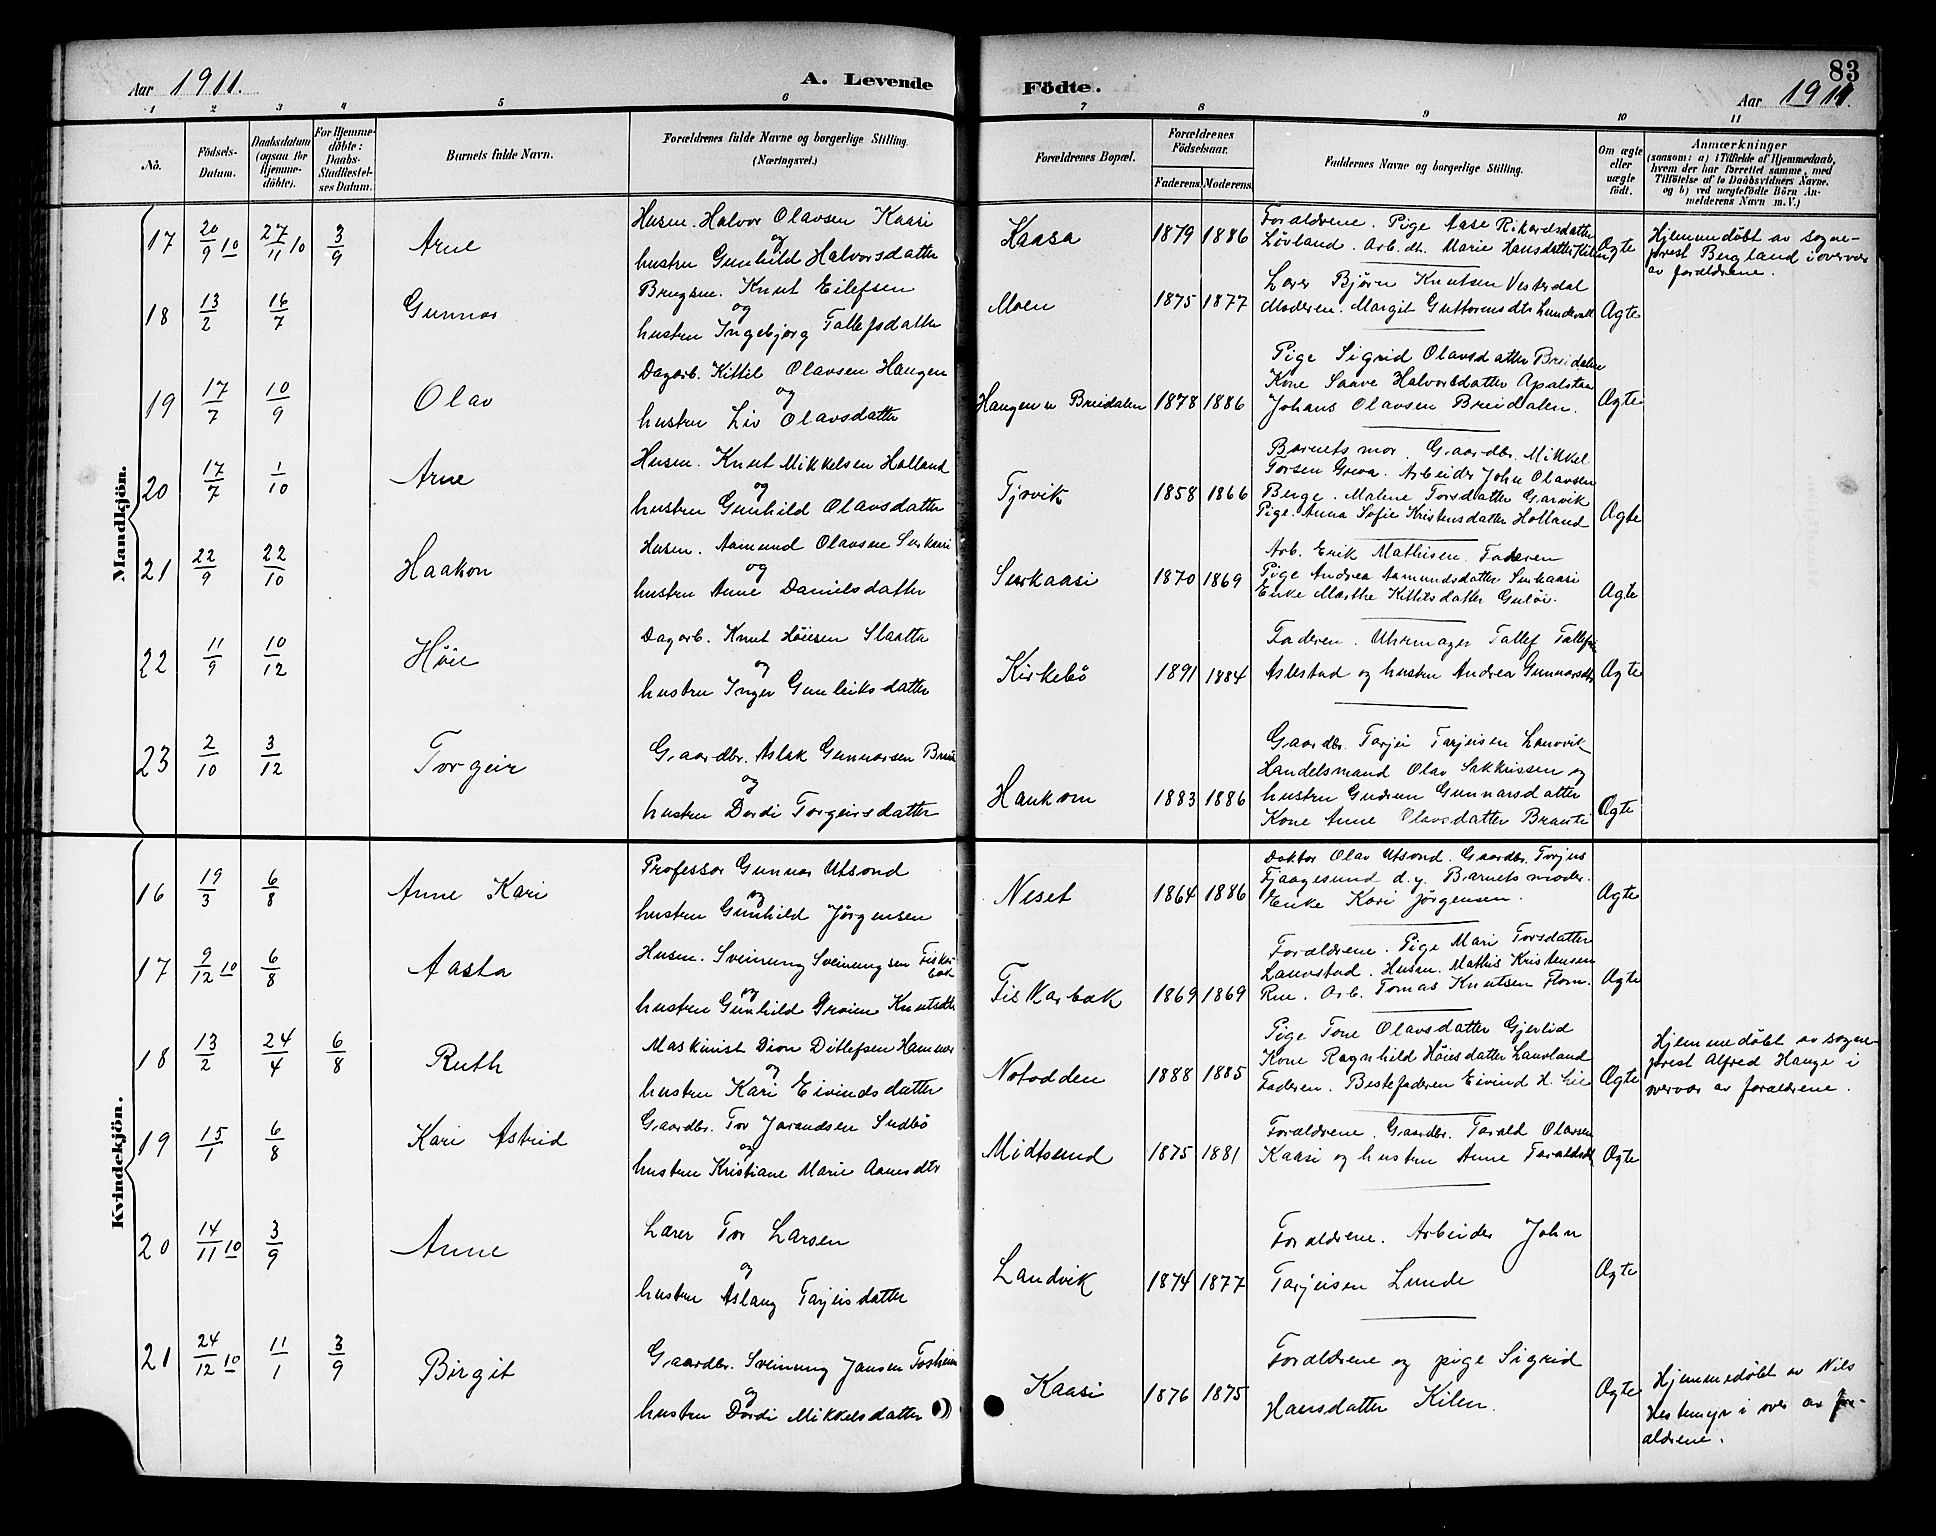 Aar 1911.
A. Levende Födte.
83
Aar 1911.
1 2 3 4 5 6 7 8 9 10 11
No.
Födsels-Datum.
Daabsdatum (ogsaa for Hjemme-döbte).
For Hjemme-döbte: Daabs-Stadfæstel-ses Datum.
Barnets fulde Navn.
Forældrenes fulde Navne og borgerlige Stilling. (Næringsvei.)
Forældrenes Bopæl.
Forældrenes Födselsaar.
Faderens. Moderens.
Faddernes Navne og borgerlige Stilling.
Om ægte eller uægte födt.
Anmærkninger
(saasom: a) i Tilfælde af Hjemmedaab, hvem der har forrettet samme, med Tilföielse af to Daabsvidners Navne, og b) ved uægtefödte Börn Anmelderens Navn m. V.)
Mandkjön.
17 20/9 10 27/11 10 3/9 Arne
Husm. Halvor Olavsen Kaasi
og
hustru Gunhild Halvorsdatter
Kaasa 1879 1886
Forældrene. Pige Aase Rikardsdatter
Løvland. Arb. dt. Marie Hansdatter Kilen
Ægte
Hjemmedøbt av sogne-
prest Bergland i overvær
av forældrene.
18 13/2 16/7 Gunnar
Brugsm. Knut Eilefsen
og
hustru Ingebjørg Tallefsdatter
Moen 1875 1877
Lærer Bjørn Knutsen Vesterdal
Moderen. Margit Guttormsdtr Lundevall
Ægte
19 17/7 10/9 Olav
Dagarb. Kittil Olavsen Haugen
og
hustru Liv Olavsdatter
Haugen u Breidalen 1878 1886
Pige Sigrid Olavsdatter Breidalen
Kone Saave Halvorsdatter Apalstaa
Johans Olavsen Breidalen.
Ægte
20 17/7 1/10 Arne
Husm. Knut Mikkelsen Holland
og
hustru Gunhild Olavsdatter
Tjovik 1858 1866
Barnets mor. Gaardbr. Mikkel
Torsen Greva. Arbeider John Olavsen
Berge. Malene Torsdatter Garvik
Pige. Anna Sofie Kristensdatter Holland
Ægte
21 22/9 22/10 Haakon
Husm. Aamund Olavsen Surkaasi
og
hustru Anne Danielsdatter
Surkaasi 1870 1869
Arb. Erik Mathisen. Faderen
Pige Andrea Aamundsdatter Surkaasi
Enke Marthe Kittilsdatter Guløi.
Ægte
22 11/9 10/12 Høie
Dagarb. Knut Høiesen Slaatta
og
hustru Inger Gunleiksdatter
Kirkebö 1891 1884
Faderen. Uhrmager Tallef Tallefs
Aslestad og hustru Andrea Gunnarsdtr
Ægte
23 2/10 3/12 Torgeir
Gaardbr. Aslak Gunnarsen Brau
og
hustru Dordi Torgeirsdatter
Haukom 1883 1886
Gaardbr. Tarjei Tarjeisen Lanvik
Handelsmand Olav Sakkrissen og
hustru Gudrun Gunnarsdatter
Kone Anne Olavsdatter Brauti
Ægte
Kvindekjön.
16 19/3 6/8 Anne Kari
Professor Gunnar Utsond
og
hustru Gunhild Jørgensen
Neset 1864 1886
Doktor Olav Utsond. Gaardbr. Torjus
Fjaagesund d.y. Barnets moder.
Enke Kari Jørgensen.
Ægte
17 9/12 10 6/8 Aasta
Husm. Sveinung Sveinungsen Fiskar
bæk
og
hustru Gunhild Groien Knutsdtr
Fiskarbæk 1869 1869
Forældrene. Pige Mari Torsdatter
Lanvstad. Husm. Mathis Kristensen
Rue. Arb. Tomas Knutsen Flom.
Ægte
18 13/2 24/4 6/8 Ruth
Maskinist Dion Ditlefsen Hammer
og
hustru Kari Eivindsdatter
Notodden 1888 1885
Pige Tone Olavsdatter Gjerlid
Kone Ragnhild Høiesdatter Lanvland
Faderen. Bestefaderen Eivind H. Lie
Ægte
Hjemmedøbt av sogne-
prest Alfred Hauge i
overvær av forældrene.
19 15/1 6/8 Kari Astrid
Gaardbr. Tor Jarandsen Sudbø
og
hustru Kristiane Marie Aamsdtr
Midtsund 1875 1881
Forældrene. Gaardbr. Tarald Olavsen
Kaasi og hustru Anne Taraldsdtr
Ægte
20 14/11 10 3/9 Anne
Lærer Tor Larsen
og
hustru Aslaug Tarjeisdatter
Landvik 1874 1877
Forældrene. Arbeider John
Tarjeisen Lunde
Ægte
21 24/12 10 11/1 3/9 Birgit
Gaardbr. Sveinung Jansen Toskeim
og
hustru Dordi Mikkelsdatter
Kaasi 1876 1875
Forældrene og pige Sigrid
Hansdatter Kilen.
Ægte
Hjemmedøbt av Nils
Hestemyr i overv av for-
ældrene.